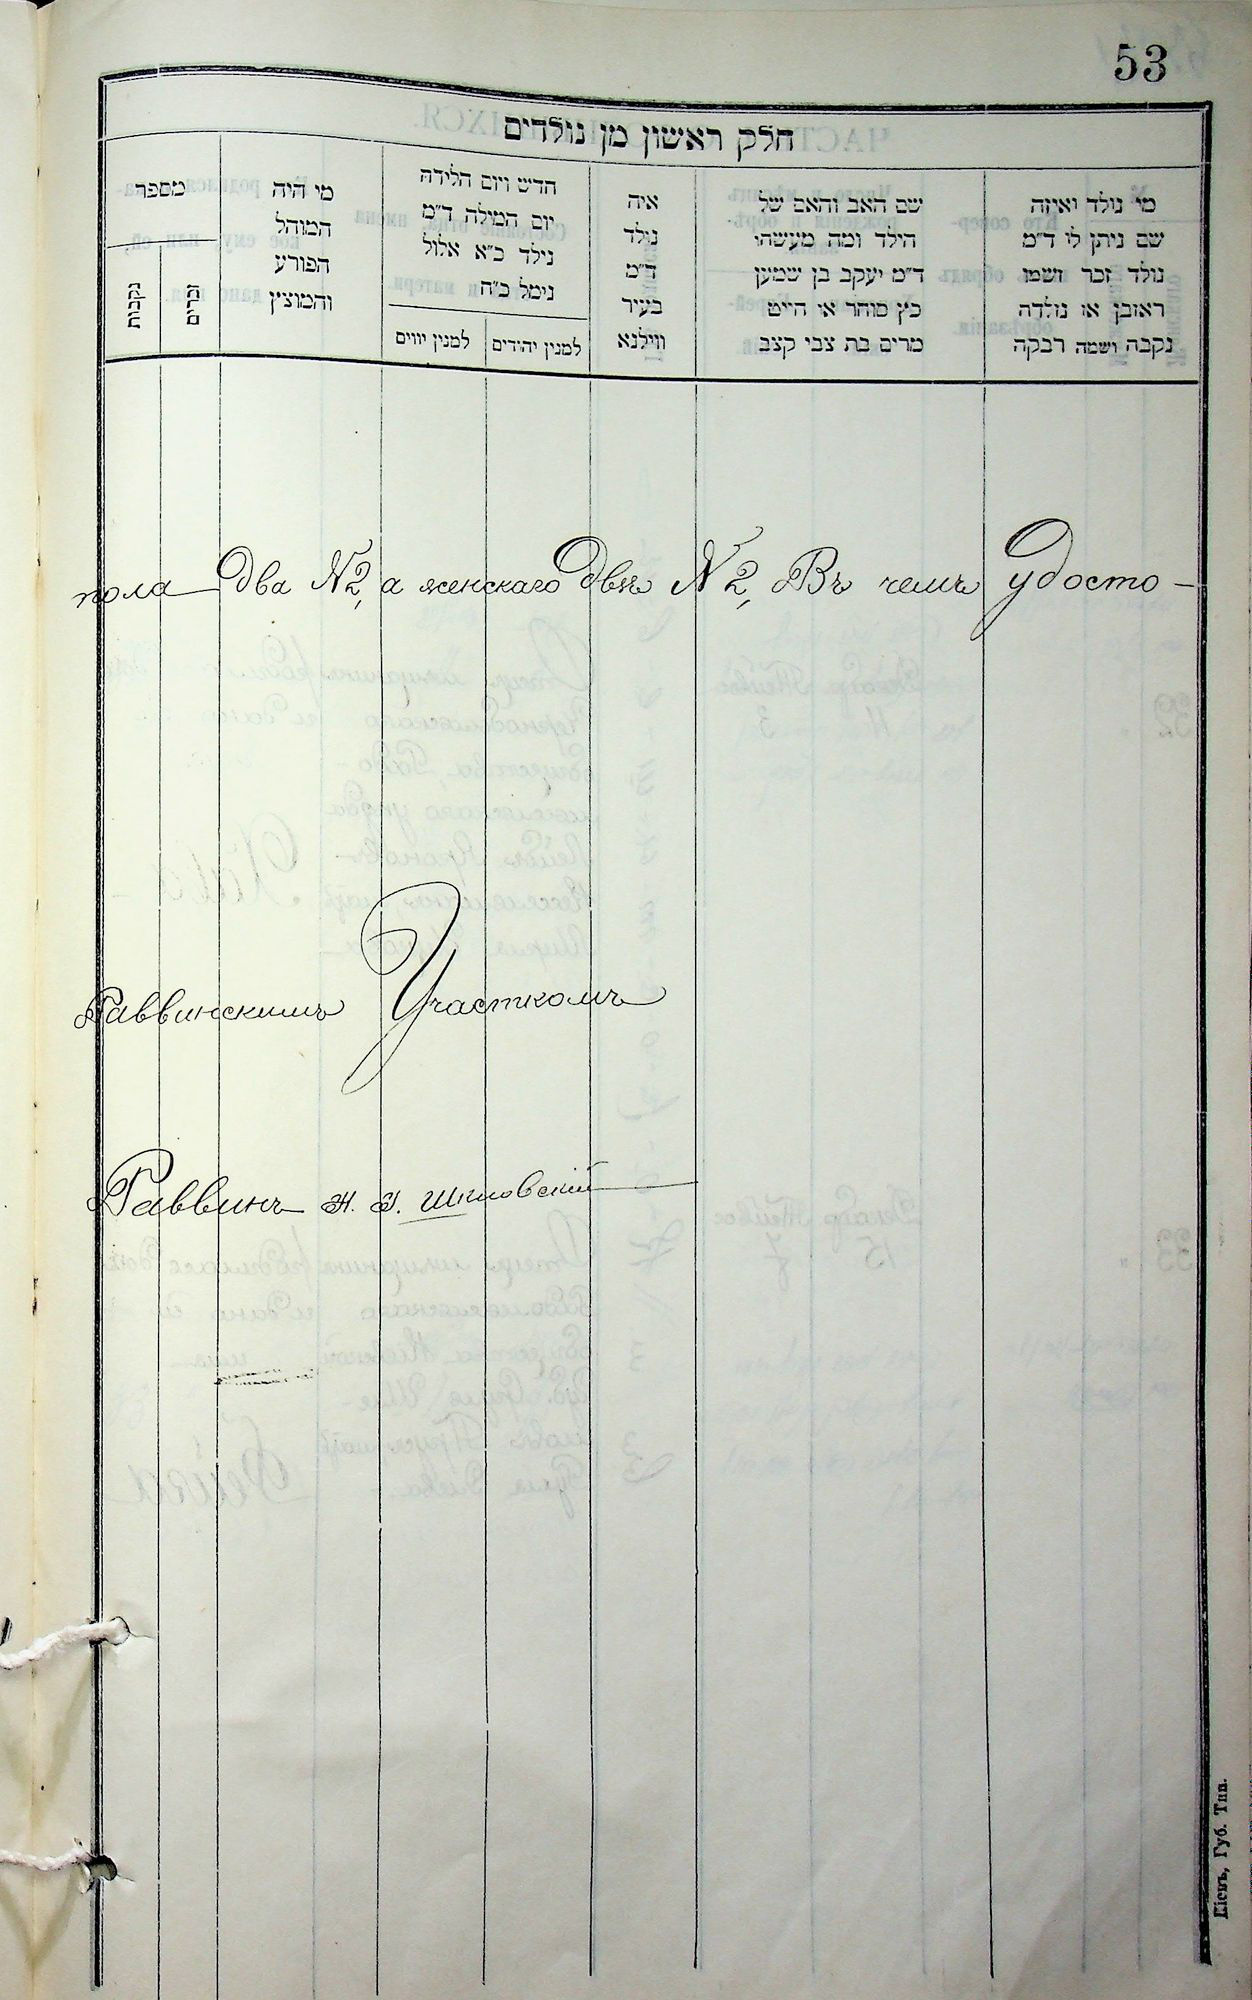 53
חלק ראשון מן נולדים
מי נולד ואיזה
שם ניתן לו ד״מ
נולד זכר ושמו
ראובן או נולדה
נקבה ושמה רבקה
שם האב והאם של
הילד ומה מעשהו
ד״מ יעקב בן שמעון
כץ סוחר או חייט
מרים בת צבי קצב
איה
נולד
ד״מ
בעיר
ווילנא
חדש ויום הלידה
יום המילה ד״מ
נילד כ״א אלול
נימל כ״ח
למנין יהודים
למנין יווים
מי היה
המוהל
הפורע
והמוצץ
מספר
זכרים
נקבות
пола два №2, а женскаго двѣ №2, Въ чемъ удосто-
Раввинскимъ Участкомъ
Раввинъ Н. Я. Шкловскій
Кіевъ, Губ. Тип.